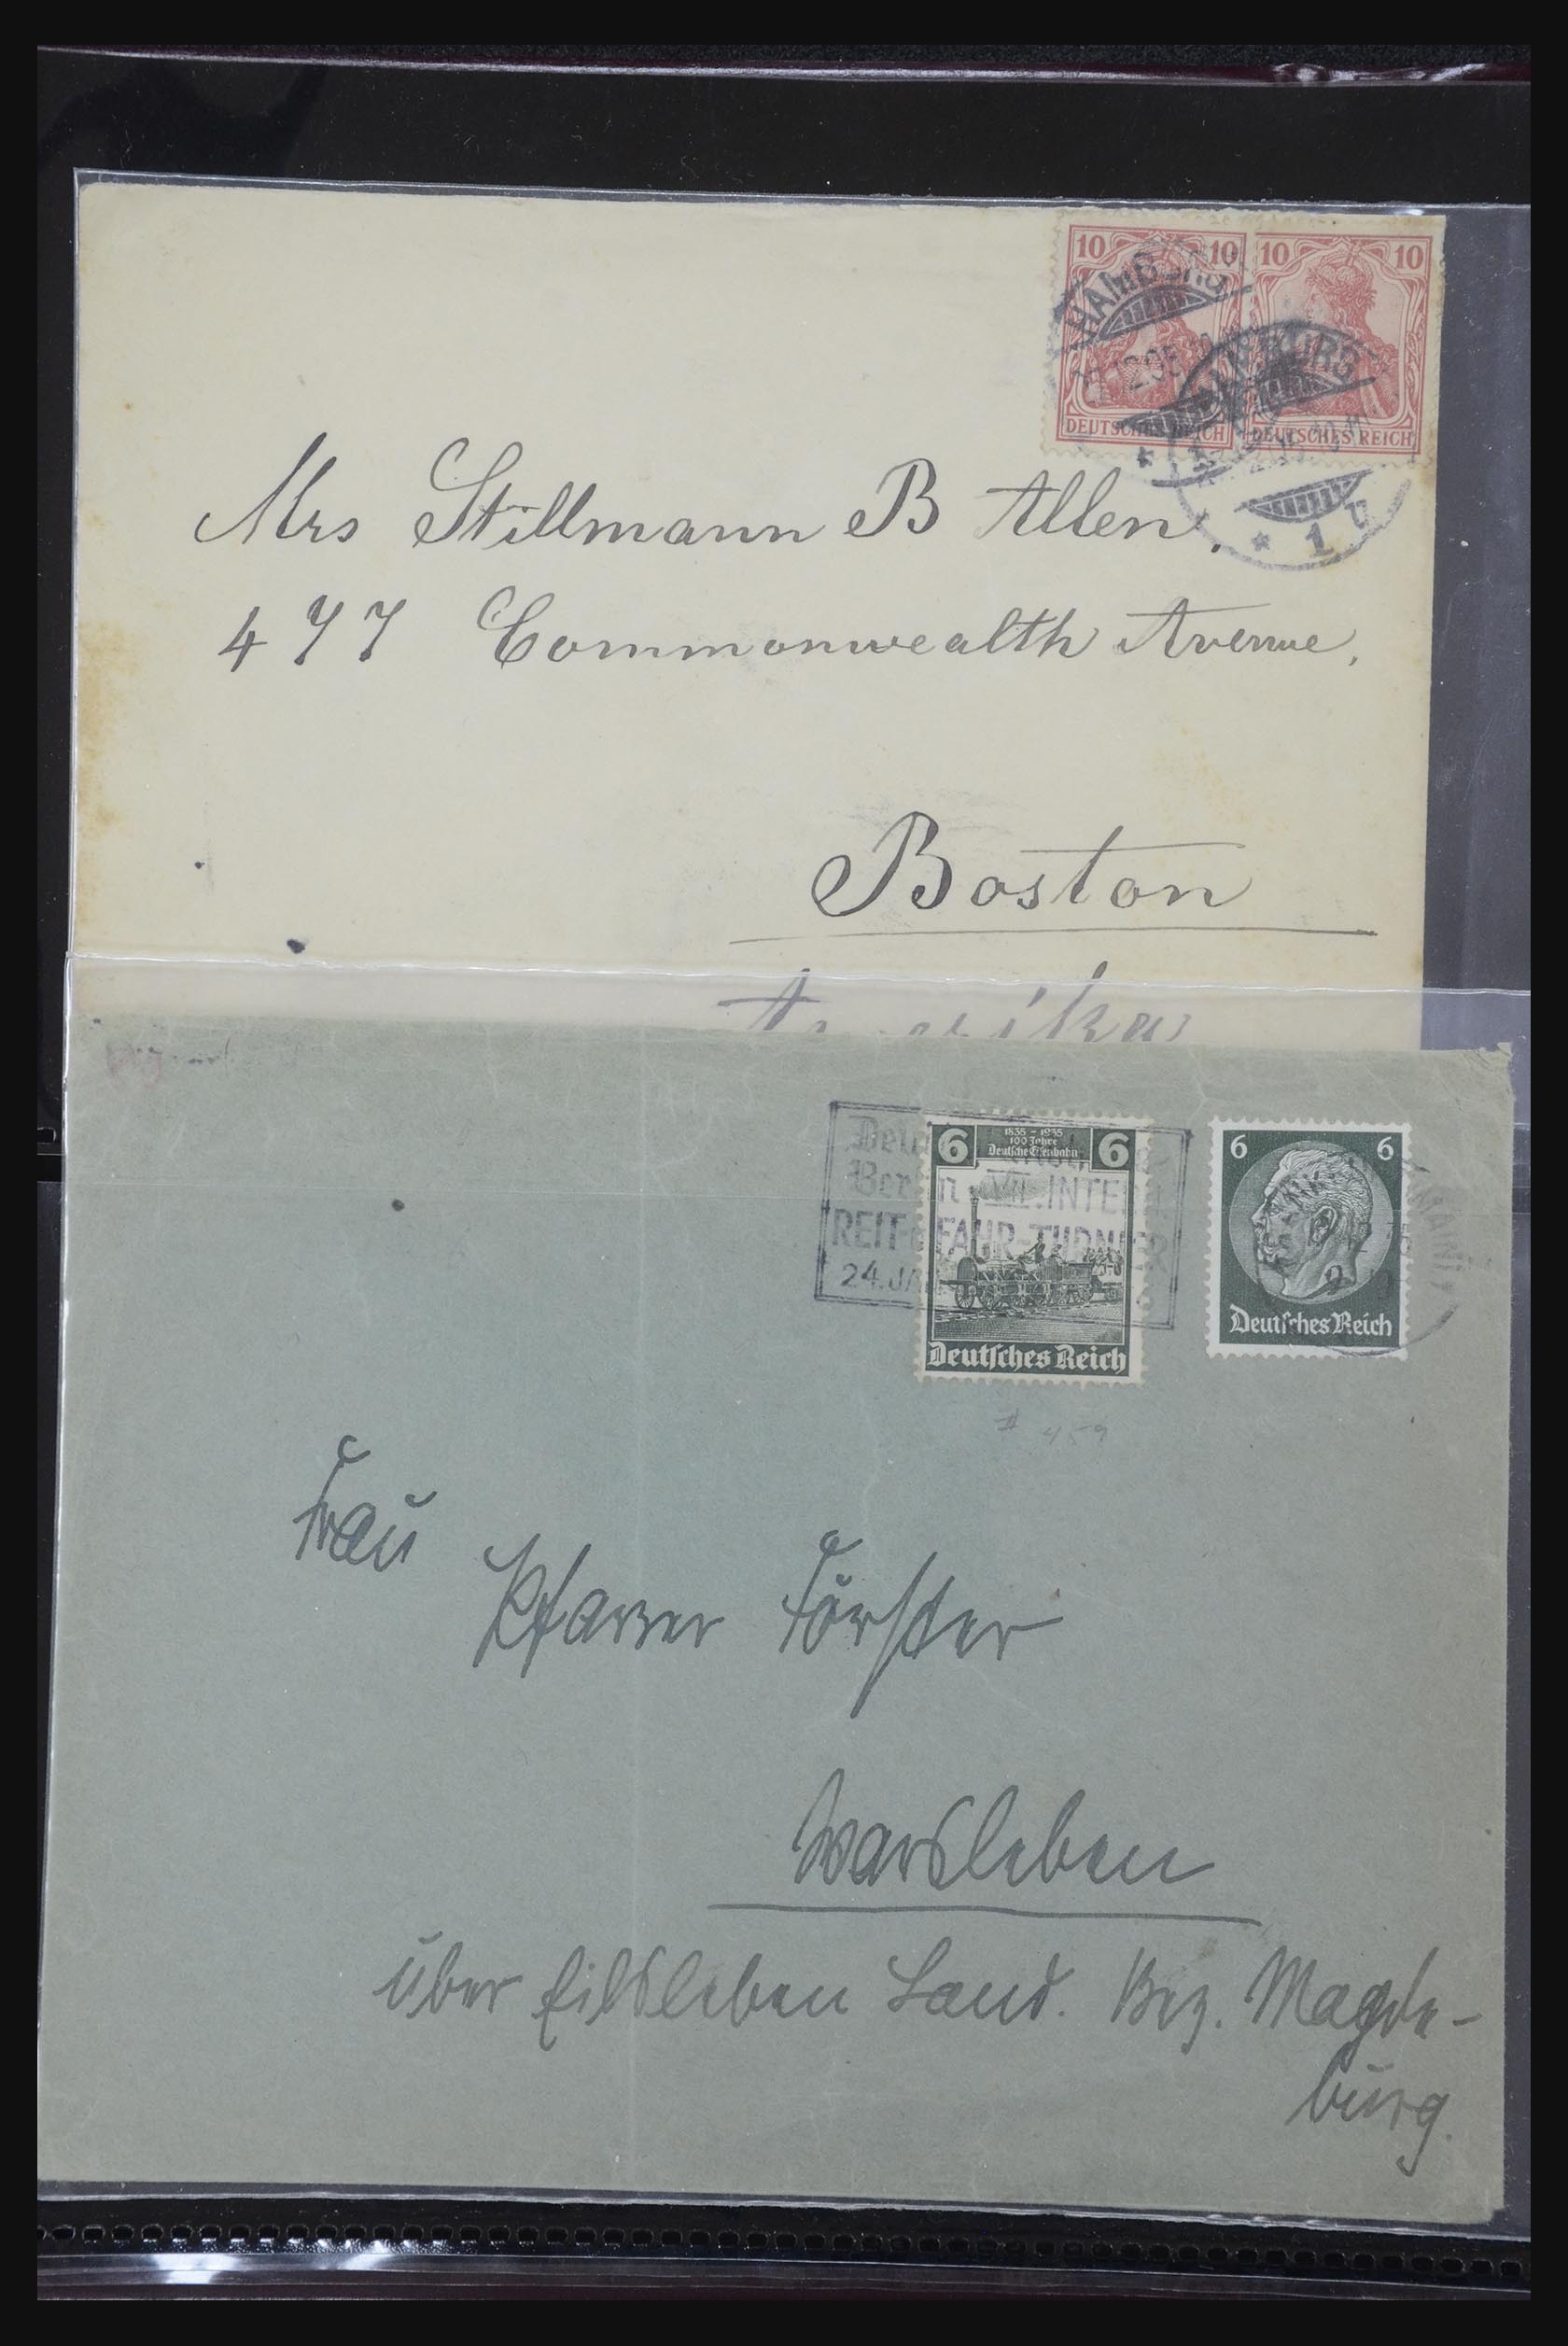 10 10 10 10
HAMBURG
HAMBURG
DEUTSCHES REICH DEUTSCHES REICH
* 1
Mrs Stillmann B Allen,
477 Commonwealth Avenue,
Boston
Amerika
6 1835-1935 6
100 Jahre
Deutsche Eisenbahn
VII. INTER
REIT- FAHR-TURNIER
24. JA
Deutsches Reich
6 6
Deutsches Reich
# 459
Frau
Pfarrer Förster
Warsleben
über Eilsleben Land. Bez. Magde-
burg.